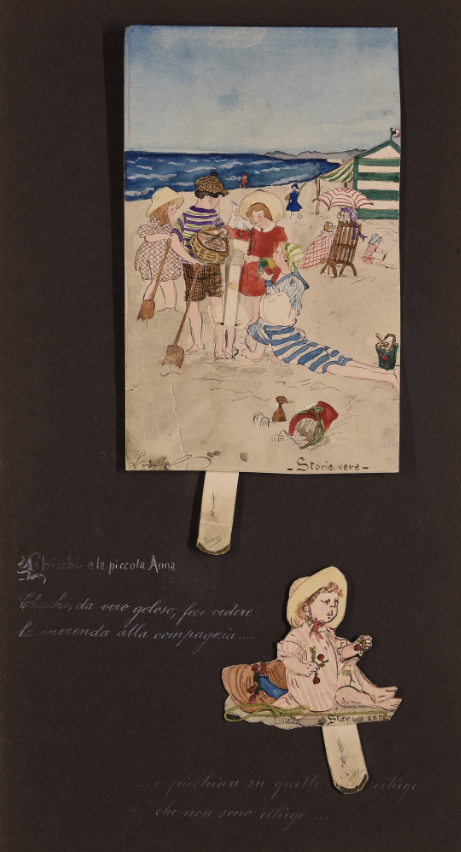 - Storie vere -
Chicchi e la piccola Anna
Chicchi, da vero goloso, fece vedere
la merenda alla compagnia.....
Storie vere
.... e picchiare su quelle ciliege
che non sono ciliege....